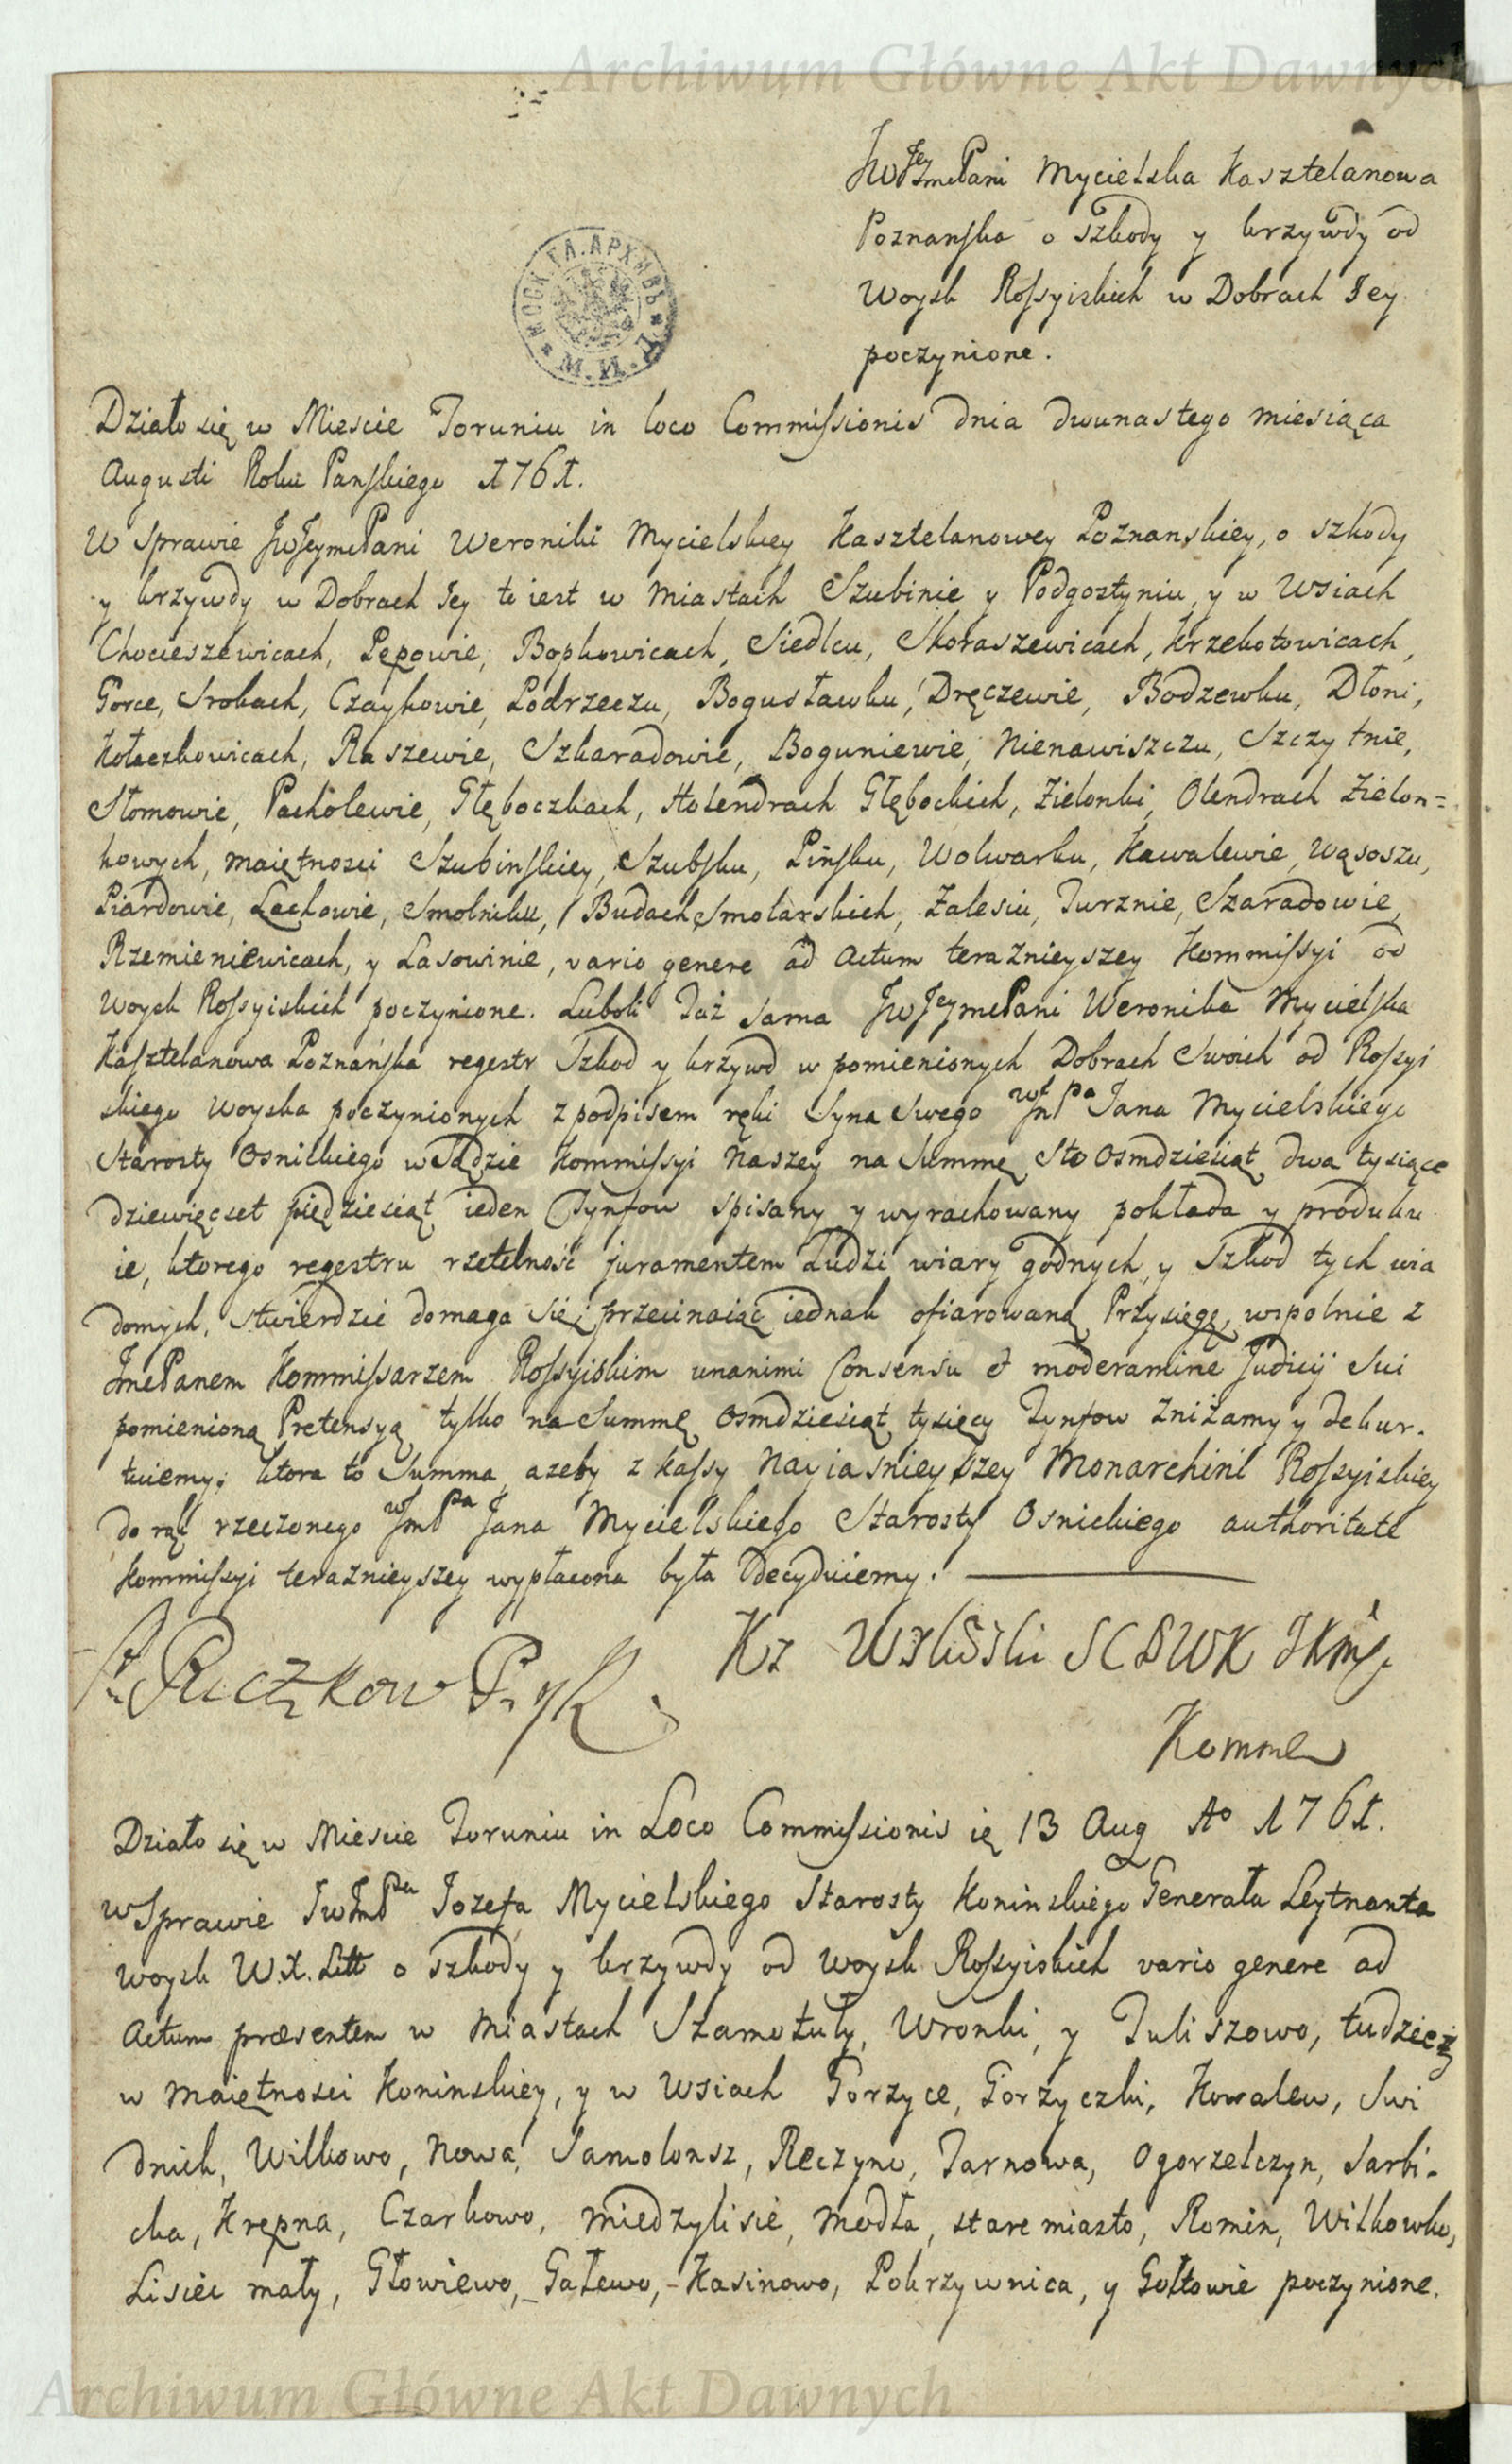 Archiwum Główne Akt Dawnych
JWJeymcPani Mycielska Kasztelanowa
Poznanska o szkody y krzywdy od
Woysk Rossyiskich w Dobrach Jey
poczynione.
МОСК. ГЛ. АРХИВЪ * М. И. Д. *
Działo się w Miescie Toruniu in loco Commissionis dnia dwunastego miesiąca
Augusti Roku Panskiego 1761.
W sprawie JWJeymcPani Weroniki Mycielskiey Kasztelanowey Poznanskiey, o szkody
y krzywdy w Dobrach Jey to iest w Miastach Szubinie y Podgostyniu, y w Wsiach
Chocieszewicach, Pępowie, Bopkowicach, Siedlcu, Skoraszewicach, Krzekotowicach,
Gorce, Srokach, Czaykowie, Podrzeczu, Bogusławku, Dręczewie, Bodzewku, Dłoni,
Kołaczkowicach, Raszewie, Szkaradowie, Boguniewie, Nienawiszczu, Szczytnie,
Słomowie, Pacholewie, Głęboczkach, Holendrach Głębockich, Zielonki, Olendrach Zielon=
kowych, maiętnosci Szubinskiey, Szubsku, Pinsku, Wolwarku, Kawalewie, Wąsoszu,
Piardowie, Lachowie, Smolniku, Budach Smolarskich, Zalesiu, Turznie, Szaradowie,
Rzemieniewicach, y Lasowinie, vario genere ad Actum teraznieyszey Kommissyi od
Woysk Rossyiskich poczynione. Lubo li Taż sama JWJeymcPani Weronika Mycielska
Kasztelanowa Poznańska regestr Szkod y krzywd w pomienionych Dobrach Swoich od Rossyi
skiego Woyska poczynionych z podpisem ręki Syna Swego WJmPa Jana Mycielskiego
Starosty Osnickiego w Sądzie Kommissyi Naszey na Summę Sto Osmdziesiąt dwa tysiące
dziewięcset piędziesiąt ieden Tynfow spisany y wyrachowany pokłada y produku
ie, ktorego regestru rzetelność juramentem Ludzi wiary godnych, y Szkod tych wia
domych, stwierdzić domaga się; przecinaiąc iednak ofiarowaną Przysięgę, wspolnie z
JmcPanem Kommissarzem Rossyiskim unanimi Consensu et moderamine Judicij Sui
pomienioną Pretensyą tylko na Summę Osmdziesiąt tysięcy Tynfow zniżamy y dekur-
tuiemy; ktora to Summa azeby z kassy Nayiasnieyszey Monarchini Rossyiskiey
do rąk rzeczonego WJmPa Jana Mycielskiego Starosty Osnickiego authoritate
Kommissyi teraznieyszey wypłacona była Decyduiemy.
Puczkow
Komm
Działo się w Miescie Toruniu in Loco Commissionis ię 13 Aug Ao 1761.
w Sprawie JWJmPa Jozefa Mycielskiego Starosty Koninskiego Generała Leytnanta
woysk W.X. Litt o szkody y krzywdy od woysk Rossyiskich vario genere ad
Actum præsentem w Miastach Szamotuły, Wronki, y Tuliszowo, tudziesz
w maiętnosci Koninskiey, y w Wsiach Gorzyce, Gorzyczki, Kowalew, Swi
dnich, Wilkowo, Nowa, Jamolonsz, Reczyno, Tarnowa, Ogorzelczyn, Sarbi-
cka, Krępna, Czarkowo, Miedzylisie, Modła, stare miasto, Romin, Witkowko,
Lisiec mały, Głowiewo, Gałewo, Kasinowo, Pokrzywnica, y Gołtowie poczynione.
Archiwum Główne Akt Dawnych